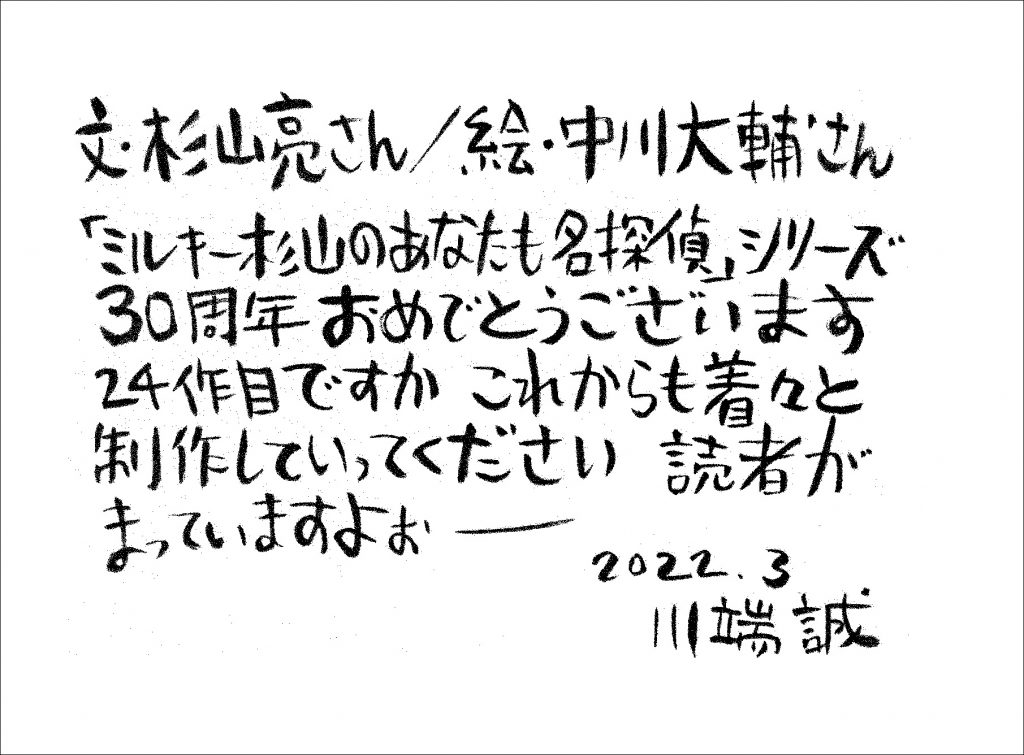 文・杉山亮さん/絵・中川大輔さん
「ミルキー杉山のあなたも名探偵」シリーズ
30周年 おめでとうございます
24作目ですか これからも着々と
制作していってください 読者が
まっていますよぉー
2022.3
川端 誠